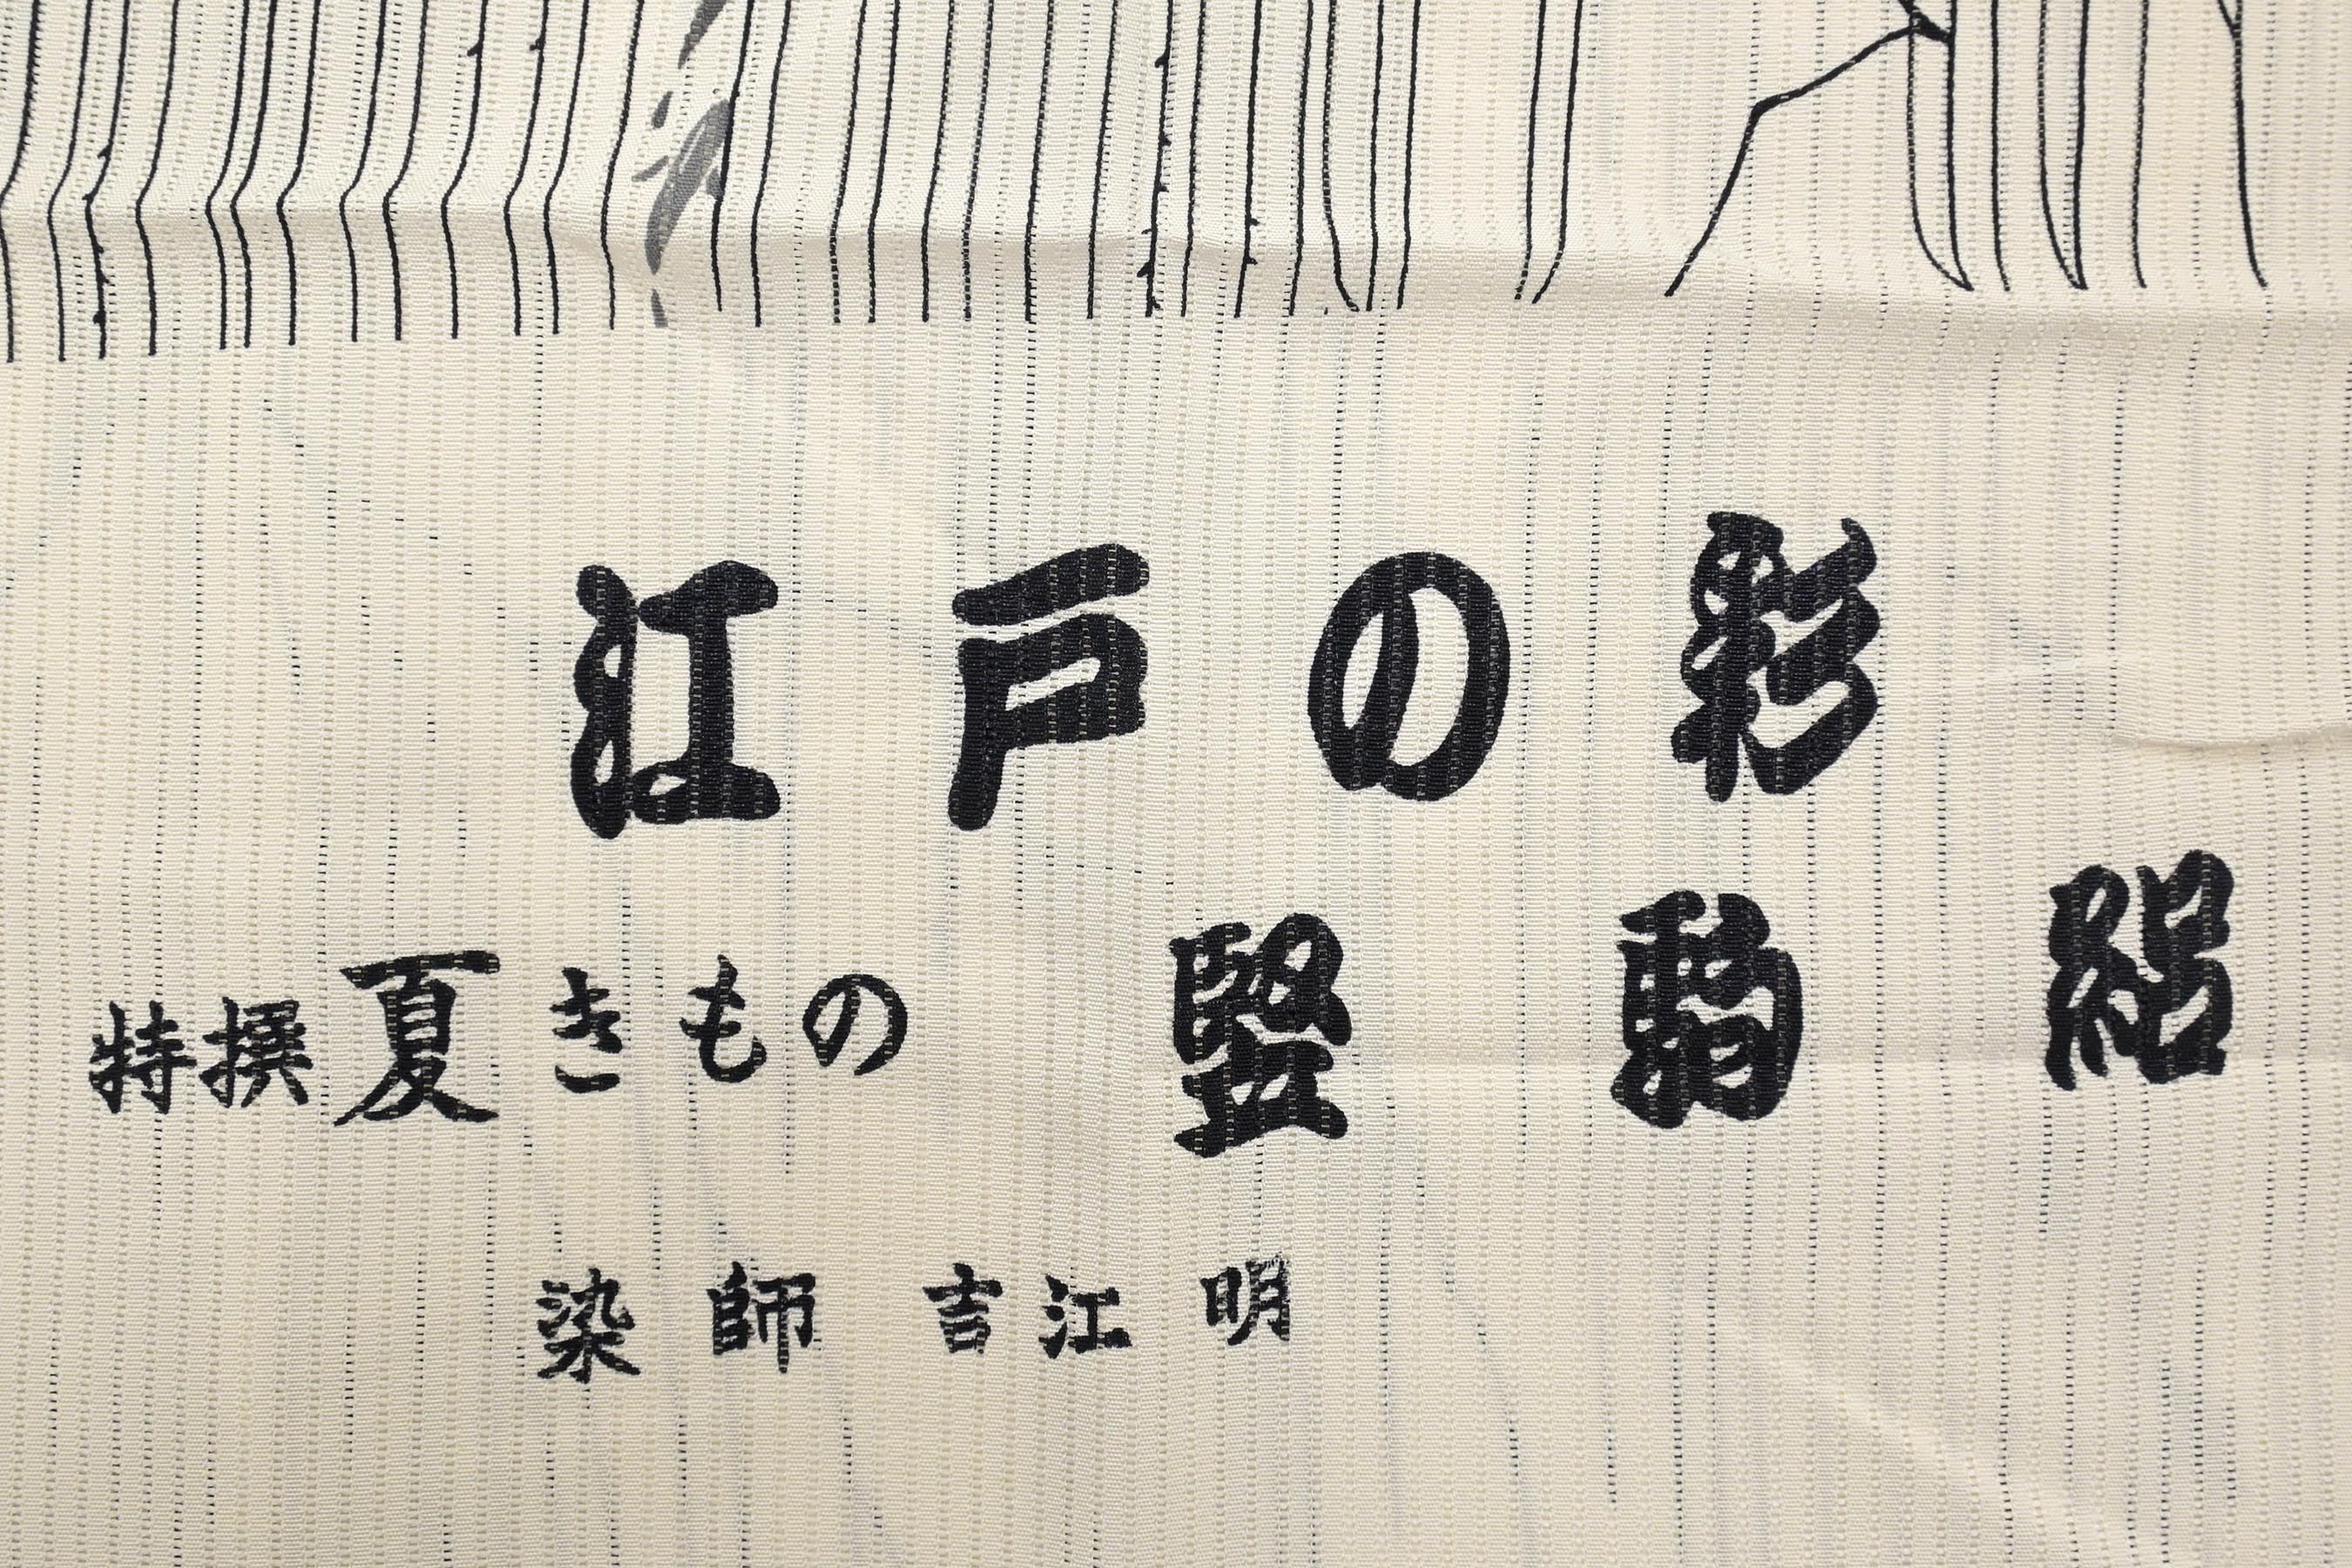 江戸の彩
特撰夏きもの 竪駒絽
染師 吉江 明